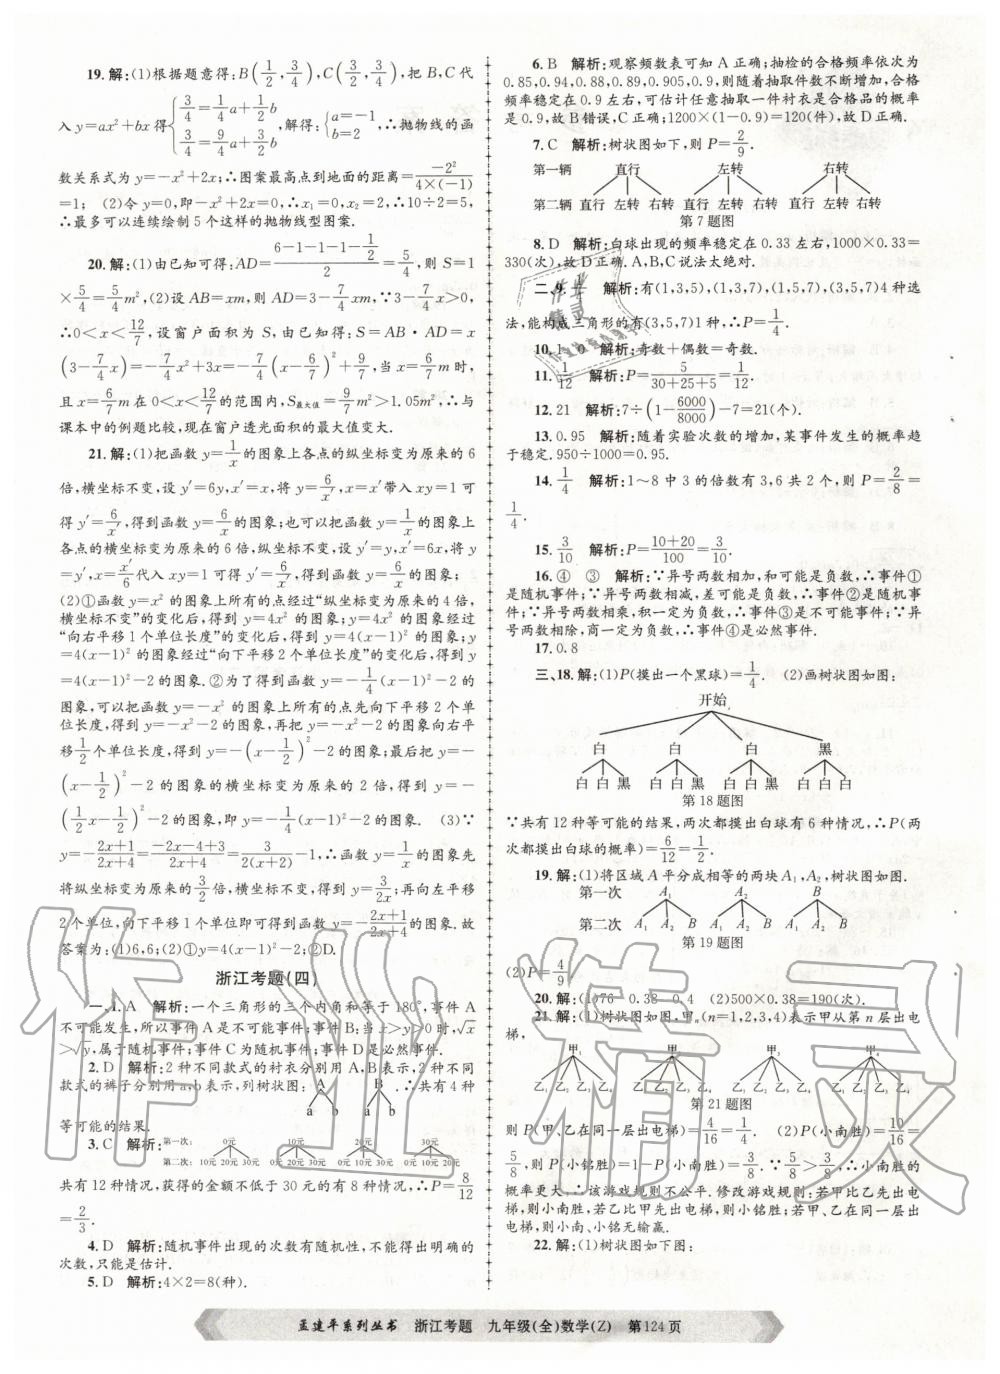 19. 解:(1)根据题意得:B(1/2,3/4),C(3/2,3/4),把 B,C 代
入 y=ax²+bx 得{3/4=1/4a+1/2b 3/4=9/4a+3/2b,解得:{a=-1 b=2,∴抛物线的函
数关系式为 y=-x²+2x;∴图案最高点到地面的距离=-2²/4×(-1)
=1; (2)令 y=0,即-x²+2x=0,∴x₁=0,x₂=2,∴10÷2=5,
∴最多可以连续绘制 5 个这样的抛物线型图案.
20. 解:(1)由已知可得:AD=(6-1-1-1-1/2)/2=5/4,则 S=1
×5/4=5/4m²,(2)设 AB=xm,则 AD=3-7/4xm,∵3-7/4x>0,
∴0<x<12/7,设窗户面积为 S,由已知得:S=AB·AD=x
(3-7/4x)=-7/4x²+3x=-7/4(x-6/7)²+9/7,当 x=6/7m 时,
且 x=6/7m 在 0<x<12/7的范围内,S最大值=9/7m²>1.05m²,∴与
课本中的例题比较,现在窗户透光面积的最大值变大.
21. 解:(1)把函数 y=1/x的图象上各点的纵坐标变为原来的 6
倍,横坐标不变,设 y′=6y,x′=x,将 y=y′/6,x=x′带入 xy=1 可
得 y′=6/x′,得到函数 y=6/x的图象;也可以把函数 y=1/x的图象上
各点的横坐标变为原来的 6 倍,纵坐标不变,设 y=y′,x′=6x,将 y
=y′,x=x′/6代入 xy=1 可得 y′=6/x′,得到函数 y=6/x的图象;
(2)①函数 y=x² 的图象上所有的点经过“纵坐标变为原来的 4 倍,
横坐标不变”的变化后,得到 y=4x² 的图象;y=4x² 的图象经过
“向右平移 1 个单位长度”的变化后,得到 y=4(x-1)² 的图象;y
=4(x-1)² 的图象经过“向下平移 2 个单位长度”的变化后,得到 y
=4(x-1)²-2 的图象.②为了得到函数 y=-1/4(x-1)²-2 的
图象,可以把函数 y=-x² 的图象上所有的点先向下平移 2 个单
位长度,得到 y=-x²-2 的图象,再把 y=-x²-2 的图象向右平
移1/2个单位长度,得到 y=-(x-1/2)²-2 的图象;最后把 y=-
(x-1/2)²-2 的图象的横坐标变为原来的 2 倍,得到 y=-
(1/2x-1/2)²-2 的图象,即 y=-1/4(x-1)²-2 的图象. (3)∵
y=2x+1/2x+4=-2x-4+3/2x+4=3/2(x+2)-1,∴函数 y=1/x的图象先
将纵坐标变为原来的3/2倍,横坐标不变,得到 y=3/2x;再向左平移
2 个单位,向下平移 1 个单位即可得到函数 y=-2x+1/2x+4的图象.故
答案为:(1)6,6;(2)①y=4(x-1)²-2;②D.
浙江考题(四)
一、1. A 解析:一个三角形的三个内角和等于 180°,事件 A
不可能发生,所以事件 A 是不可能事件;事件 B:当 x>y>0 时,√x
>√y,属于随机事件;事件 C 为随机事件;事件 D 是必然事件.
2. D 解析:2 种不同款式的衬衣分别用 A,B 表示,2 种不同
款式的裤子分别用 a,b 表示,列树状图: A B .∴共有 4 种
a b a b
等可能的结果.
3. C 解析: 第一次: 0元 10元 20元 30元
第二次: 10元 20元 30元 0元 20元 30元 0元 10元 30元 0元 10元 20元
共有 12 种情况,获得的金额不低于 30 元的有 8 种情况,∴P=8/12
=2/3.
4. D 解析:随机事件出现的次数有随机性,不能得出明确的
次数,只能是估计.
5. D 解析:4×2=8(种).
6. B 解析:观察频数表可知 A 正确;抽检的合格频率依次为
0.85,0.94,0.88,0.89,0.905,0.9,则随着抽取件数不断增加,合格
频率稳定在 0.9 左右,可估计任意抽取一件衬衣是合格品的概率
是 0.9,故 B 错误,C 正确;1200×(1-0.9)=120(件),故 D 正确.
7. C 解析:树状图如下,则 P=2/9.
第一辆 直行 左转 右转
第二辆 直行 左转 右转 直行 左转 右转 直行 左转 右转
第 7 题图
8. D 解析:白球出现的频率稳定在 0.33 左右,1000×0.33=
330(次),故 D 正确.A,B,C 说法太绝对.
二、9. 1/4 解析:有(1,3,5),(1,3,7),(1,5,7),(3,5,7)4 种选
法,能构成三角形的有(3,5,7)1 种,∴P=1/4.
10. 1 0 解析:奇数+偶数=奇数.
11. 1/12 解析:P=5/30+25+5=1/12.
12. 21 解析:7÷(1-6000/8000)-7=21(个).
13. 0.95 解析:随着实验次数的增加,某事件发生的概率趋
于稳定.950÷1000=0.95.
14. 1/4 解析:1~8 中 3 的倍数有 3,6 共 2 个,则 P=2/8=
1/4.
15. 3/10 解析:P=10+20/100=3/10.
16. ④ ③ 解析:∵异号两数相加,和可能是负数,∴事件①
是随机事件;∵异号两数相减,差可能是负数,∴事件②是随机事
件;∵异号两数相乘,积一定为负数,∴事件③是不可能事件;∵异
号两数相除,商一定为负数,∴事件④是必然事件.
17. 0.8
三、18. 解:(1)P(摸出一个黑球)=1/4. (2)画树状图如图:
开始
白 白 白 黑
白 白 黑 白 白 黑 白 白 黑 白 白 白
第 18 题图
∵共有 12 种等可能的结果,两次都摸出白球有 6 种情况,∴P(两
次都摸出白球的概率)=6/12=1/2.
19. 解:(1)将区域 A 平分成相等的两块 A₁,A₂,树状图如图.
第一次 A₁ A₂ B
第二次 A₁ A₂ B A₁ A₂ B A₁ A₂ B
第 19 题图
(2)P=4/9
20. 解:(1)76 0.38 0.4 (2)500×0.38=190(次).
21. 解:(1)树状图如图,甲ₙ(n=1,2,3,4)表示甲从第 n 层出电
梯,
甲₁ 甲₂ 甲₃ 甲₄
乙₁ 乙₂ 乙₃ 乙₄ 乙₁ 乙₂ 乙₃ 乙₄ 乙₁ 乙₂ 乙₃ 乙₄ 乙₁ 乙₂ 乙₃ 乙₄
第 21 题图
则 P(甲、乙在同一层出电梯)=4/16=1/4. (2)P(小南胜)=10/16=
5/8,则 P(小铭胜)=1-P(小南胜)=3/8.∵5/8>3/8,∴小南胜的
概率更大,∴该游戏规则不公平.修改游戏规则:若甲比乙先出电
梯,则小南胜,若乙比甲先出电梯,则小铭胜;若甲、乙在同一层出
电梯,则小南、小铭无输赢.
22. 解:(1)树状图如下图:
孟建平系列丛书 浙江考题 九年级(全)数学(Z) 第 124 页
作业精灵